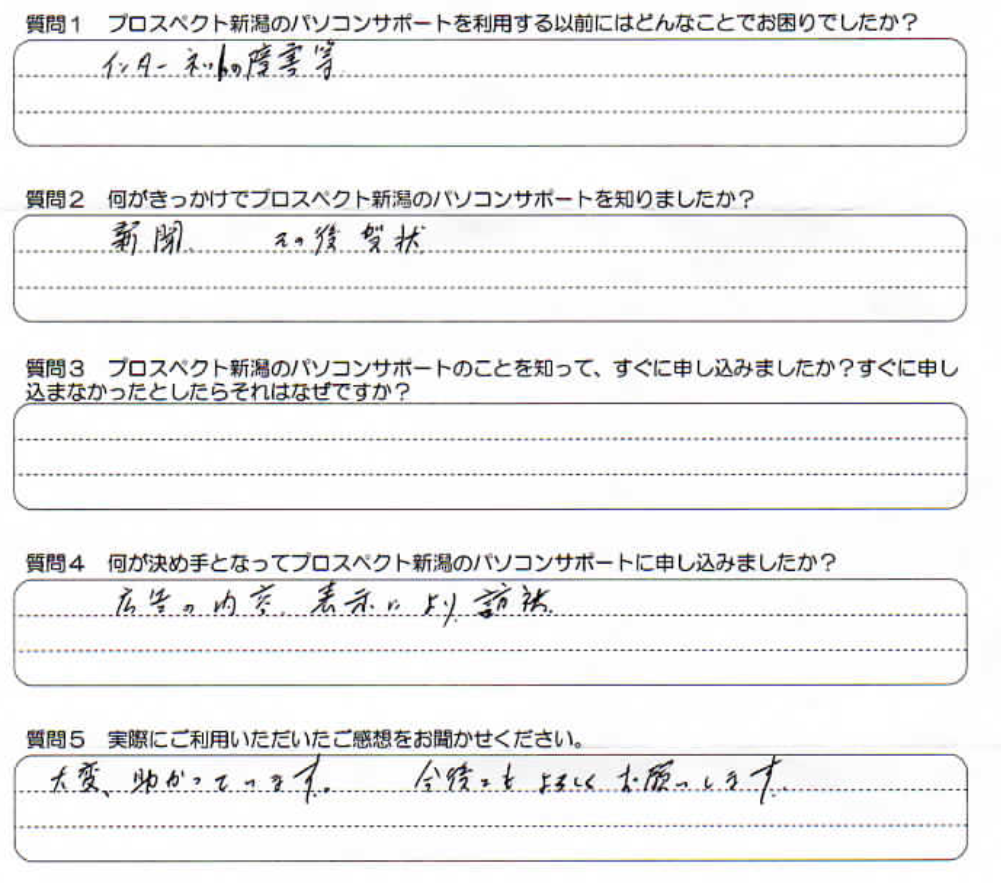 質問1 プロスペクト新潟のパソコンサポートを利用する以前にはどんなことでお困りでしたか?
インターネットの障害等
質問2 何がきっかけでプロスペクト新潟のパソコンサポートを知りましたか?
新聞、 その後賀状
質問3 プロスペクト新潟のパソコンサポートのことを知って、すぐに申し込みましたか?すぐに申し
込まなかったとしたらそれはなぜですか?
質問4 何が決め手となってプロスペクト新潟のパソコンサポートに申し込みましたか?
広告の内容、表示により、
質問5 実際にご利用いただいたご感想をお聞かせください。
大変、助かっています。 今後ともよろしくお願いします。